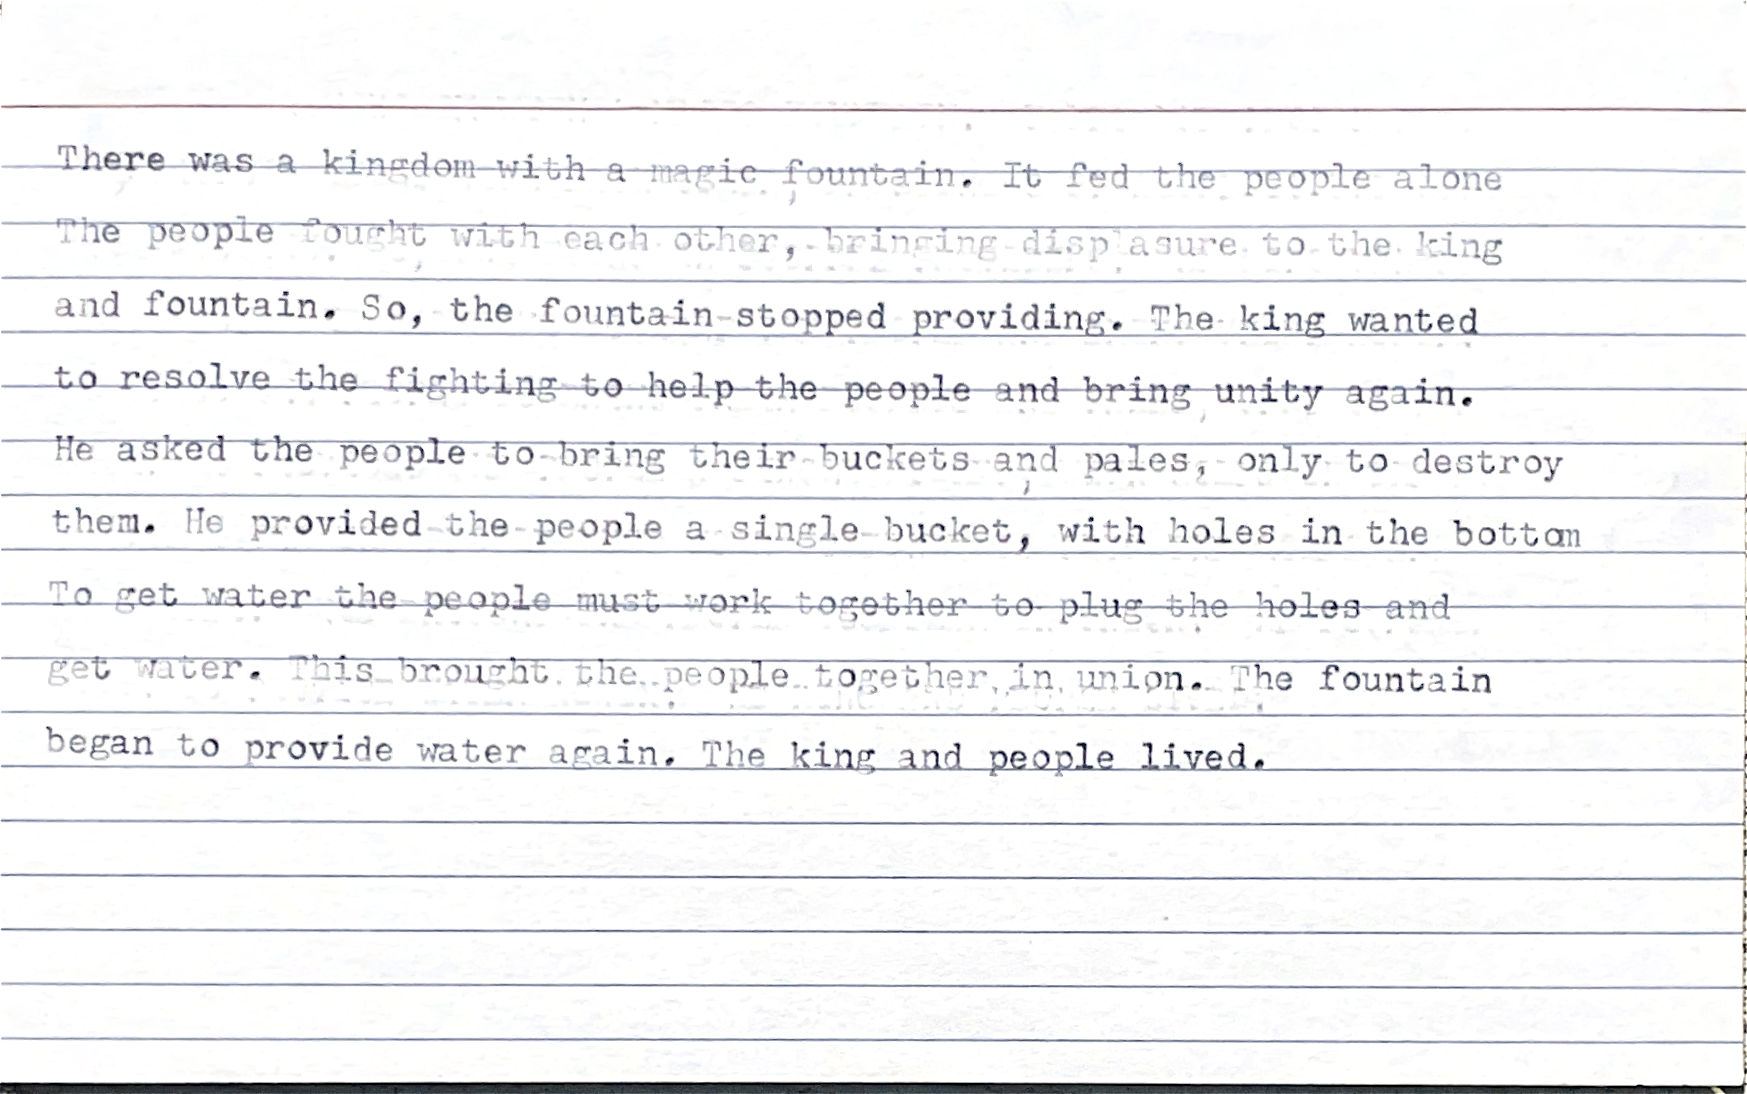 There was a kingdom with a magic fountain. It fed the people alone
The people fought with each other, bringing displasure to the king
and fountain. So, the fountain stopped providing. The king wanted
to resolve the fighting to help the people and bring unity again.
He asked the people to bring their buckets and pales, only to destroy
them. He provided the people a single bucket, with holes in the bottom
To get water the people must work together to plug the holes and
get water. This brought the people together in union. The fountain
began to provide water again. The king and people lived.